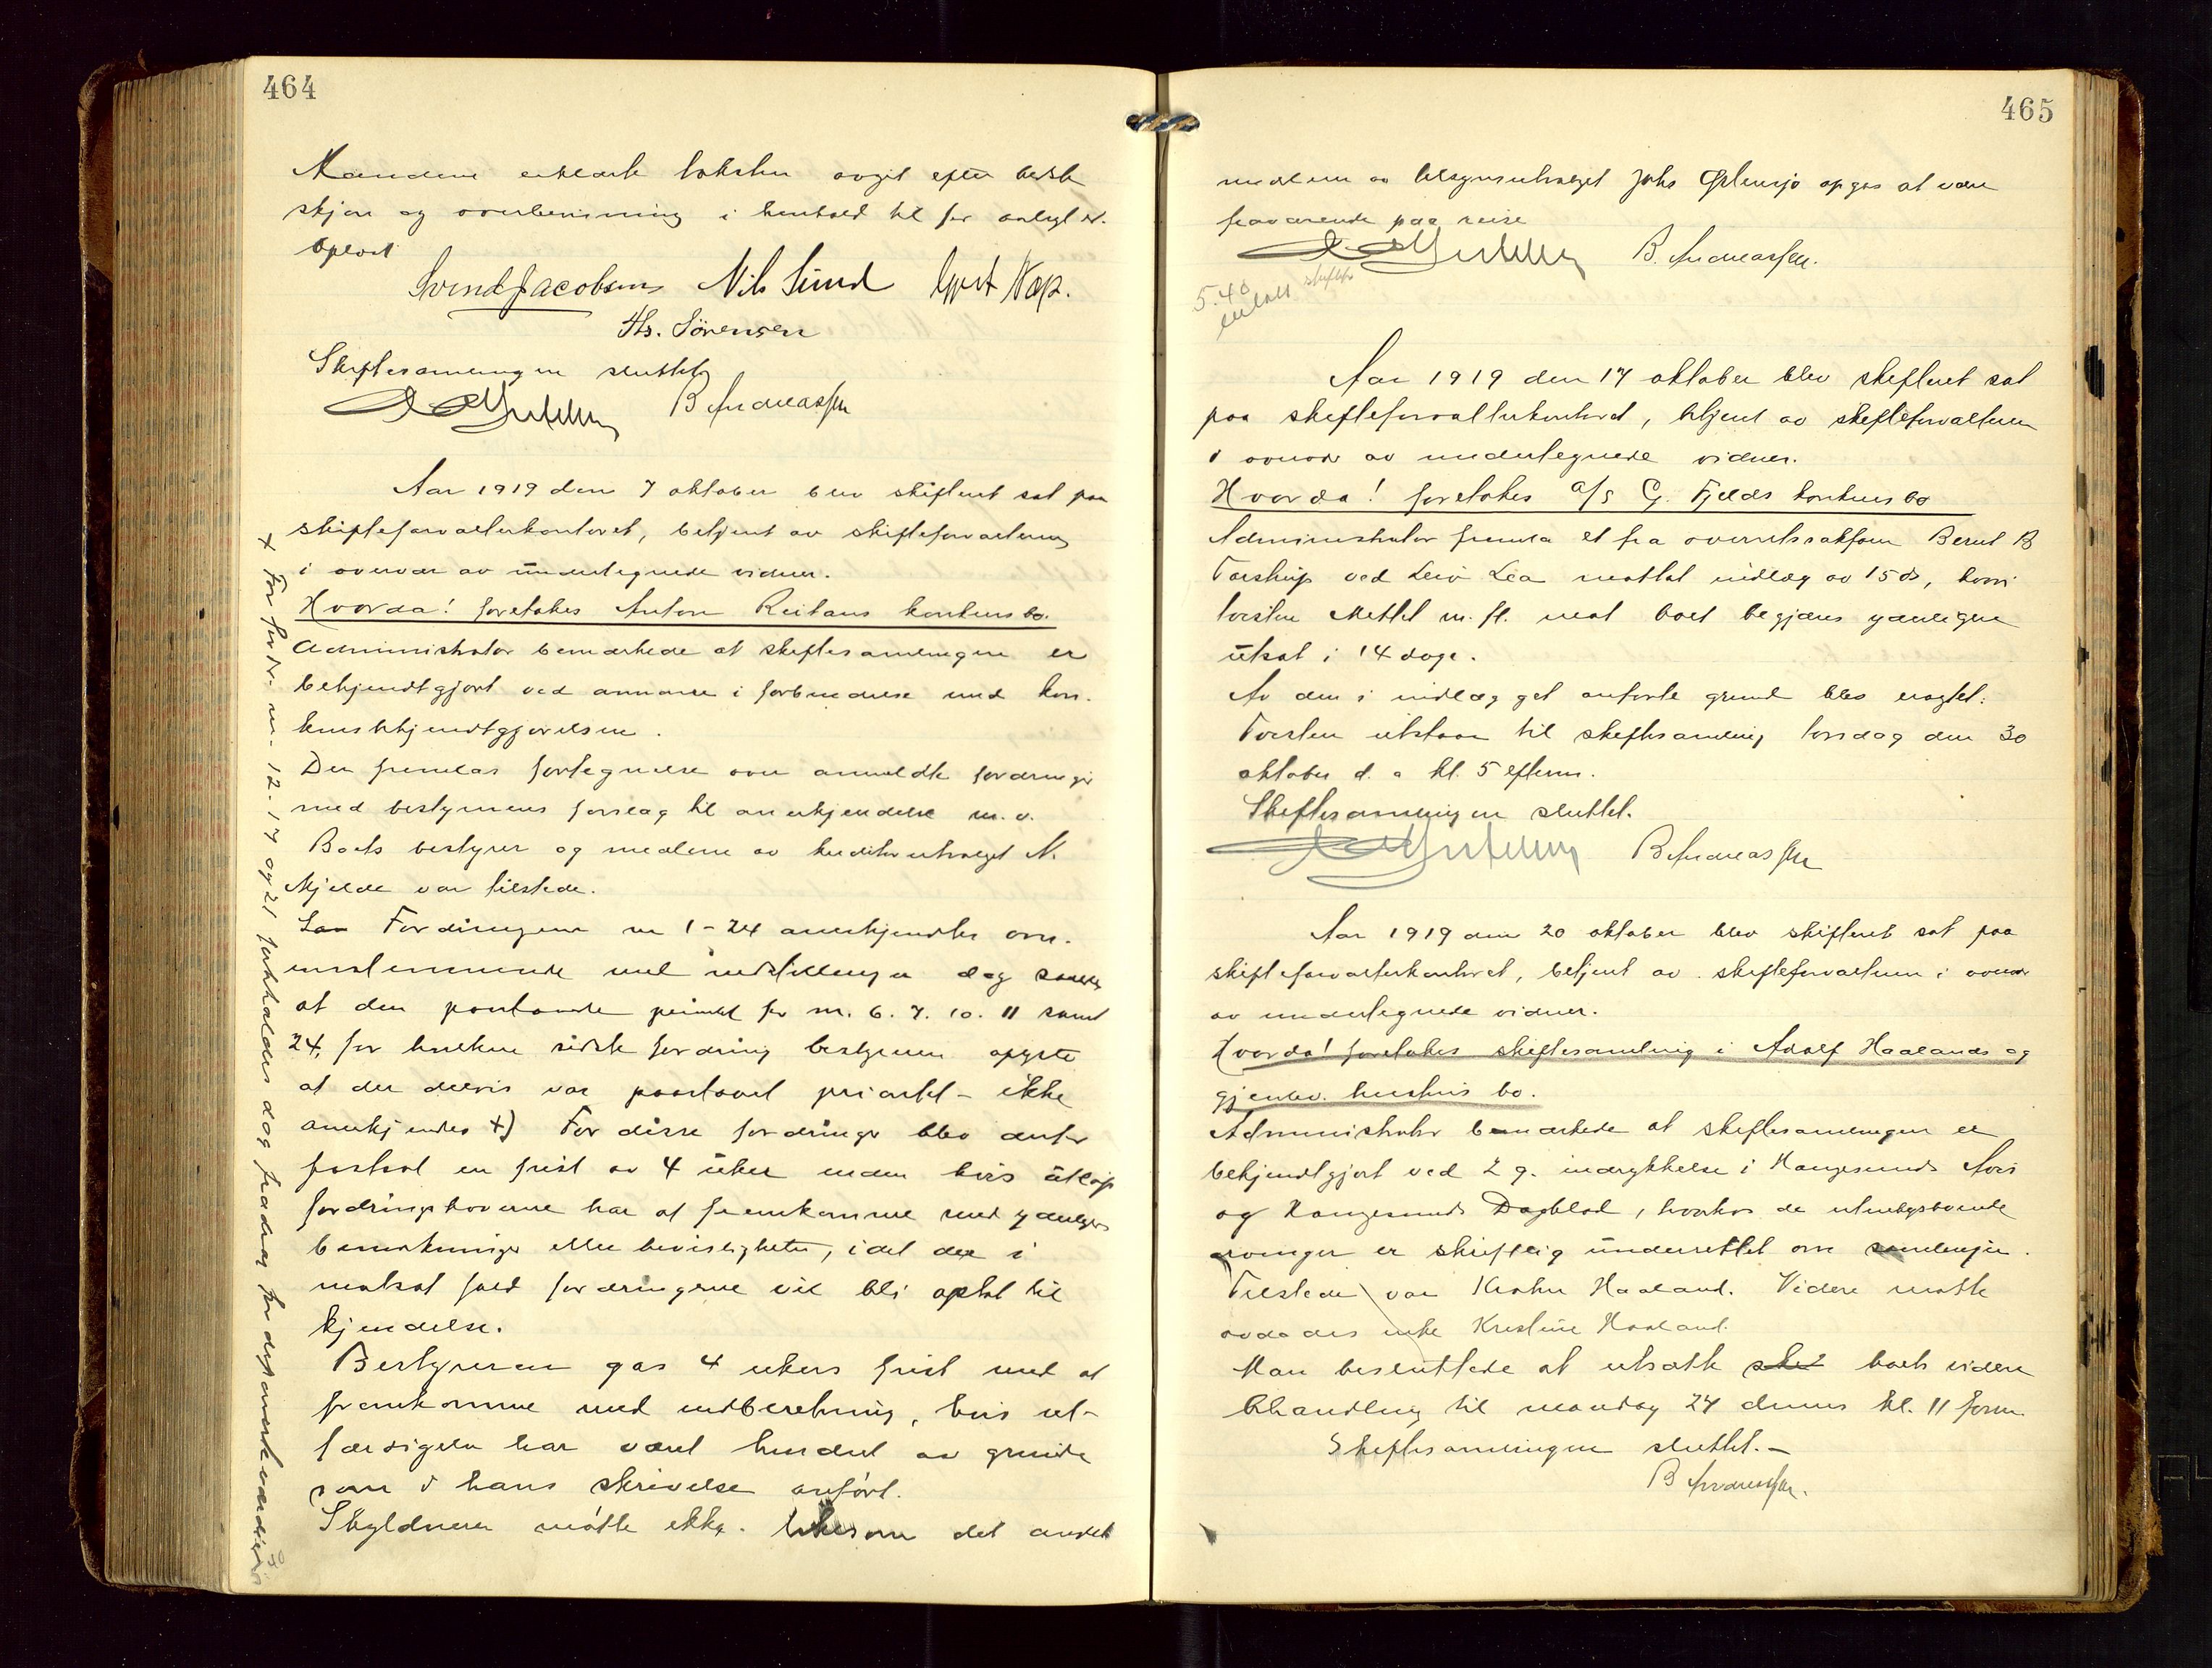 464
Mændene erklærte taksten avgit efter bedste
skjøn og overbevisning i henhold til før avlagt ed.
Oplæst
Svend Jacobsen Nils Sund
Ths. Sörensen
Skiftesamlingen sluttet
B Andreassen
Aar 1919 den 7 oktober blev skifteret sat paa
skifteforvalterkontoret, betjent av skifteforvalteren
i overvær av undertegnede vidner.
Hvorda! foretokes Anton Reitans konkursbo.
Administrator bemærkede at skiftesamlingen er
bekjendtgjort ved annonce i forbindelse med kon-
kursbekjendtgjørelsen.
Der fremlaa fortegnelse over anmeldte fordringer
med bestyrerens forslag til anerkjendelse m.v.
Boets bestyrer og medlem av kreditorutvalget N.
Mjelde var tilstede.
Fordringene nr 1-24 anerkjendtes over-
ensstemmende med indstillingen dog saaledes
at den paastaaede prioritet for nr. 6. 7. 10. 11 samt
24, for hvilken sidste fordring bestyreren oplyste
at der delvis var paastaaet prioritet - ikke
anerkjendes +) For disse fordringer blev derfor
fastsat en frist av 4 uker inden hvis utløp
fordringshaverne har at fremkomme med yderligere
bemerkninger eller bevisligheter, idet der i
motsat fald fordringerne vil bli optat til
kjendelse.
Bestyreren gas 4 ukers frist med at
fremkomme med indberetning, hvis ut-
færdigelse har været hindret av grunde
som i hans skrivelse anført.
Skyldneren møtte ikke. likesom det andet
+ For fordr. nr. 12. 17 og 21 forholdes dog fradrag for
465
medlem av tilsynsutvalget Johs Østensjø opgas at være
fraværende paa reise
B. Andreassen.
5.40
Aar 1919 den 17 oktober blev skifteret sat
paa skifteforvalterkontoret, betjent av skifteforvalteren
i overvær av undertegnede vidner.
Hvorda! foretokes a/s G. Fjelds konkursbo
Administrator fremla et fra overretssakfører Bernt B
Torstrup ved Leiv Lea mottat indlæg av 15 ds, hvori
tvisten Mettet m. fl. mot boet begjæres yderligere
utsat i 14 dage.
Av den i indlægget anførte grund blev eragtet:
Tvisten utstaar til skiftesamling torsdag den 30
oktober d. a kl. 5 efterm.
Skiftesamlingen sluttet.
B Andreassen
Aar 1919 den 20 oktober blev skifteret sat paa
skifteforvalterkontoret, betjent av skifteforvalteren i overvær
av undertegnede vidner.
Hvorda! foretokes skiftesamling i Adolf Haalands og
gjenlev. hustrus bo.
Administrator bemærkede at skiftesamlingen er
bekjendtgjort ved 2 g. indrykkelse i Haugesunds Avis
og Haugesunds Dagblad, hvorhos de utenbysboende
arvinger er skriftlig underrettet om samlingen.
Tilstede var Haaland. Videre møtte
avdødes enke Kristine Haaland.
Man besluttede at utsætte boets videre
behandling til mandag 27 dennes kl. 11 form
Skiftesamlingen sluttet.-
B Andreassen.